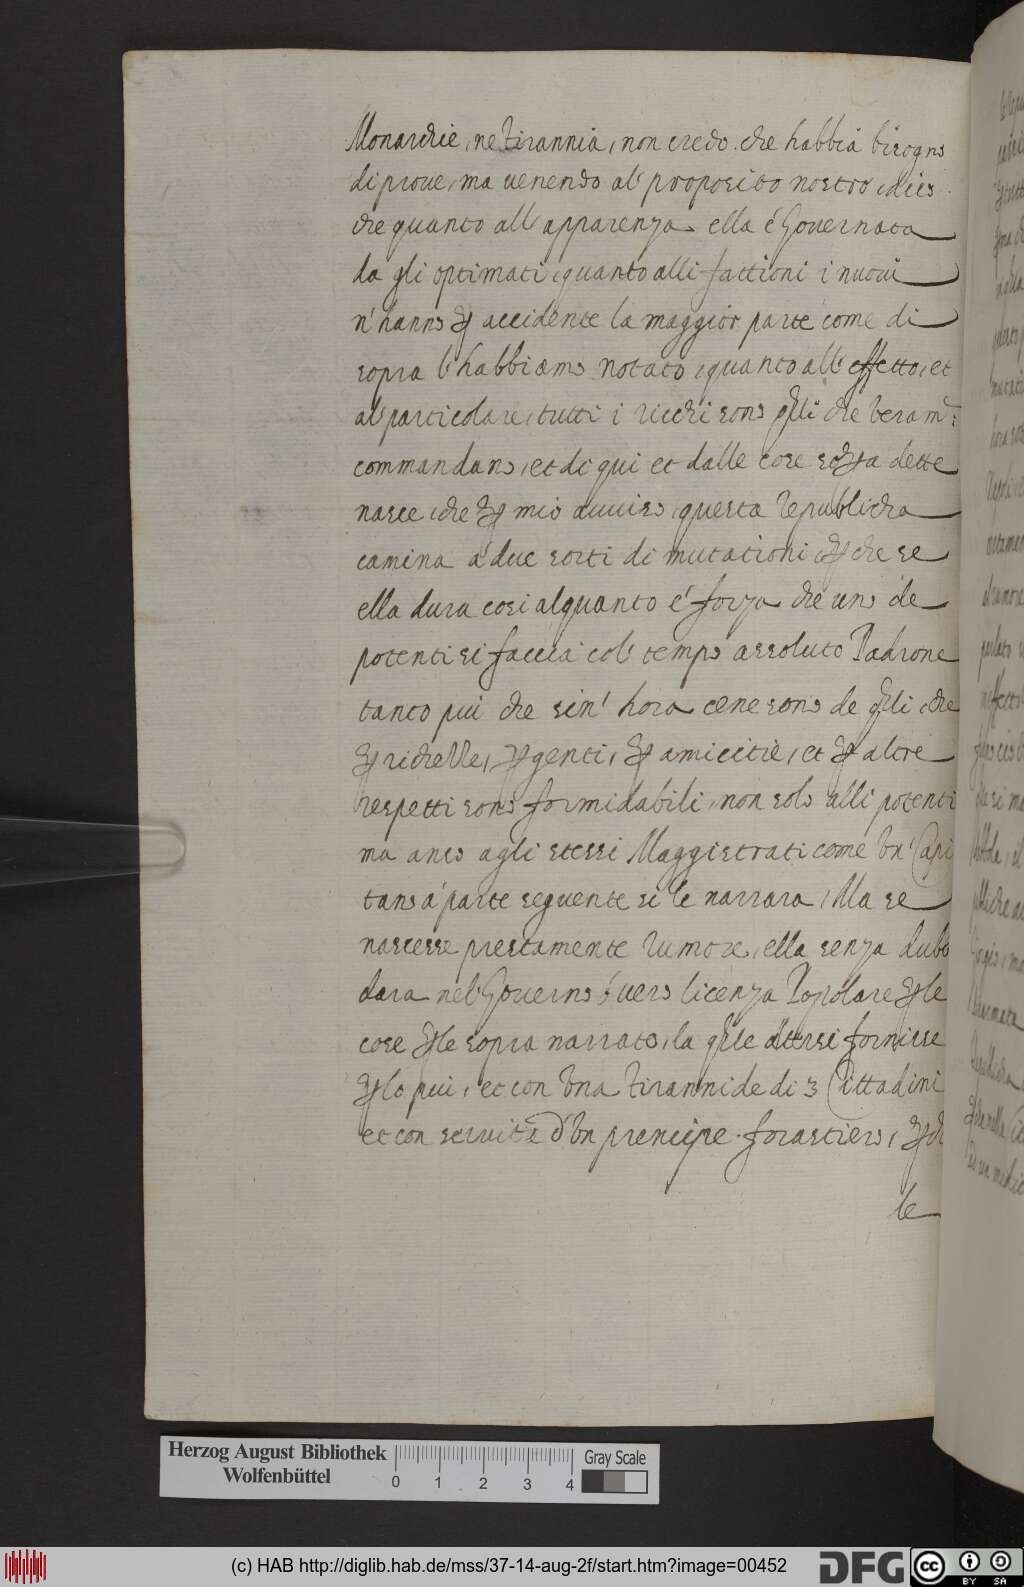 Monarchie, ne tirannia, non credo che habbia bisogno
di proue, ma uenendo al' proposito nostro, dico
che quanto all' apparenza ella é Gouernata
da gli optimati, quanto alli fattioni i nuoui
n' hanno per accidente la maggior parte come di
sopra l' habbiamo notato, quanto all' effetto, et
al' particolare, tutti i ricchi sono quelli che veram.te
commandano, et di qui et dalle cose sopra dette
nasce, che per mio auuiso, questa republicha
camina a' due sorti di mutationi, perche se
ella dura cosi alquanto e' forza che uno de
potenti si faccia col' tempo assoluto Padrone
tanto piu che sin' hora cene sono de quelli, che
per richezze, per genti, per amicitie, et per altri
respetti sono formidabili, non solo alli potenti
ma anco agli stessi Maggistrati come un' Capi
tano a' parte seguente si le narrara, Ma se
nascesse prestamente rumore, ella senza dub
dara nel' Gouerno ó uero licenza Popolare per le
cose per le sopra narrato, la quale altresi fornisse
per lo piu, et con una tirannide di 3 Cittadini
et con seruitu d' un prencipe forastiero, per
le
Herzog August Bibliothek
Wolfenbüttel
0 1 2 3 4
Gray Scale
(c) HAB http://diglib.hab.de/mss/37-14-aug-2f/start.htm?image=00452
DFG
cc BY SA